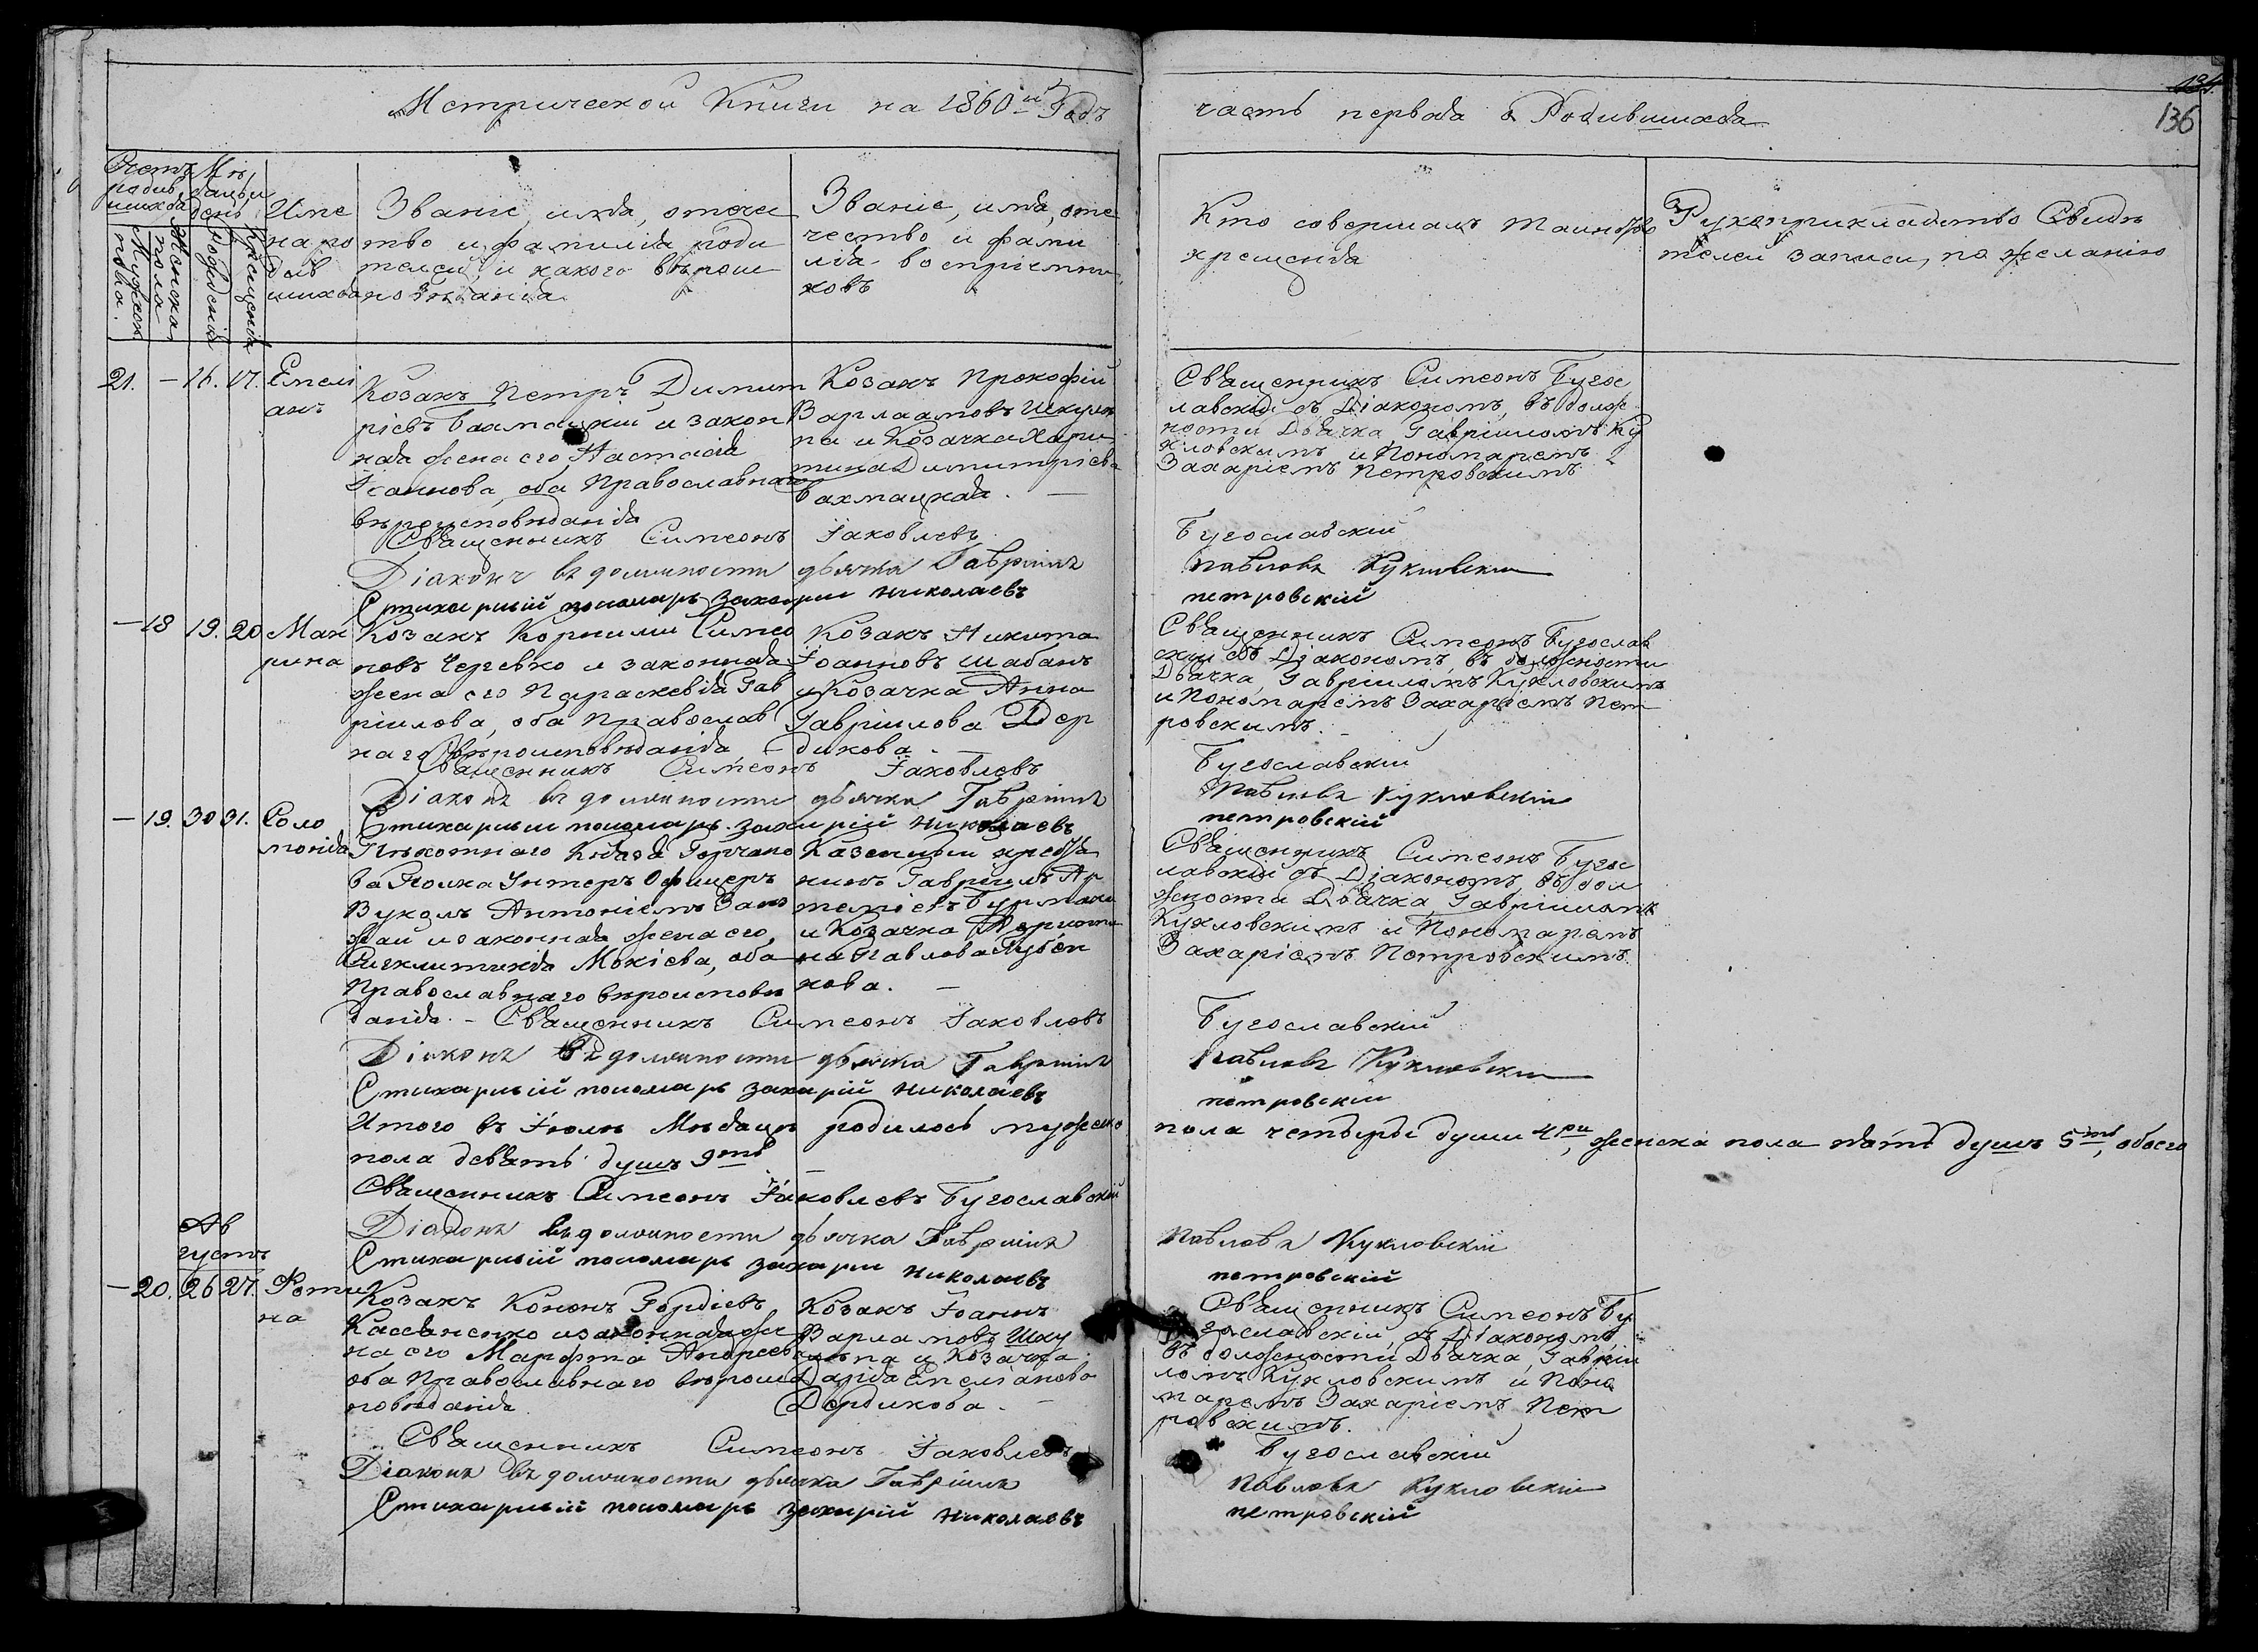 Метрической Книги на 1860й Годъ
часть первая о Родившихся
134.
136
Счетъ родив шихся
Мужска пола.
Женска пола
Мѣ сяцъ и день
Рожденія
Крещенія
Име
на ро
див
шихся
Званіе, имя, отече
ство и фамилія роди
телей, и какого вѣроис
повѣданія
Званіе, имя, оте
чество и фами
лія воспріемни
ковъ
Кто совершалъ таинство
крещенія
Рукоприкладство Свидѣ
телей записи, по желанію
21. — 16. 17. Емелі
анъ
Козакъ Петръ Димит
ріевъ Бахмацкій и закон
ная жена его Настасія
Іоаннова, оба Православнаго
вѣроисповѣданія
Козакъ Прокофій
Варлаамовъ Шкуль
па и Козачка Хари
тина Димитріева
Бахмацкая. —
Священникъ Симеонъ Бугос
лавскій съ Діакономъ, въ долж
ности Дьячка, Гавріиломъ Ку
кловскимъ и Пономаремъ
Захаріемъ Петровскимъ
Священникъ Симеонъ Іаковлевъ Бугославскій
Діаконъ въ должности дьячка Гавріилъ Павловъ Кукловскій
Стихарный пономарь Захарій Николаевъ Петровскій
— 18 19. 20 Мак
рина
Козакъ Корнилій Симео
новъ Чергевко и законная
жена его Параскевія Гав
ріилова, оба Православ
наго вѣроисповѣданія —
Козакъ Никита
Іоанновъ Шабанъ
и Козачка Анна
Гавріилова Дер
дикова. —
Священникъ Симеонъ Бугослав
скій съ Діакономъ, въ должности
Дьячка, Гавріиломъ Кукловскимъ
и Пономаремъ Захаріемъ Пет
ровскимъ. —
Священникъ Симеонъ Іаковлевъ Бугославскій
Діаконъ въ должности дьячка Гавріилъ Павловъ Кукловскій
Стихарный пономарь Захарій Николаевъ Петровскій
— 19. 30 31. Соло
монія
Пѣхотнаго Князя Горчако
ва Полка Унтеръ Офицеръ
Вуколъ Антоніевъ
и законная жена его,
Сигклитикія Мокіева, оба
Православнаго вѣроисповѣ
данія. —
Казенный крестья
нинъ Гавріилъ Ар
темьевъ
и Козачка
на Павлова
кова. —
Священникъ Симеонъ Бугос
лавскій съ Діакономъ, въ дол
жности Дьячка, Гавріиломъ
Кукловскимъ и Пономаремъ
Захаріемъ Петровскимъ.
Священникъ Симеонъ Іаковлевъ Бугославскій
Діаконъ въ должности дьячка Гавріилъ Павловъ Кукловскій
Стихарный пономарь Захарій Николаевъ Петровскій
Итого въ Іюлѣ Мѣсяцѣ родилось мужеска пола четыры души 4ри, женска пола пять душъ 5ть, обоего
пола девять душъ 9ть —
Священникъ Симеонъ Іаковлевъ Бугославскій
Діаконъ въ должности дьячка Гавріилъ Павловъ Кукловскій
Стихарный пономарь Захарій Николаевъ Петровскій
Ав
густъ
— 20. 26 27. Фоти
на
Козакъ Кононъ Гордіевъ
Касьяненко и законная же
на его Марфа Андреева
оба Православнаго вѣроис
повѣданія
Козакъ Іоаннъ
Варламовъ Шку
льпа и Козачка
Дарія Емеліанова
Дердикова. —
Священникъ Симеонъ Бу
гославскій, съ Діакономъ,
въ должности Дьячка, Гавріи
ломъ Кукловскимъ и Поно
маремъ Захаріемъ Пет
ровскимъ.
Священникъ Симеонъ Іаковлевъ Бугославскій
Діаконъ въ должности дьячка Гавріилъ Павловъ Кукловскій
Стихарный пономарь Захарій Николаевъ Петровскій